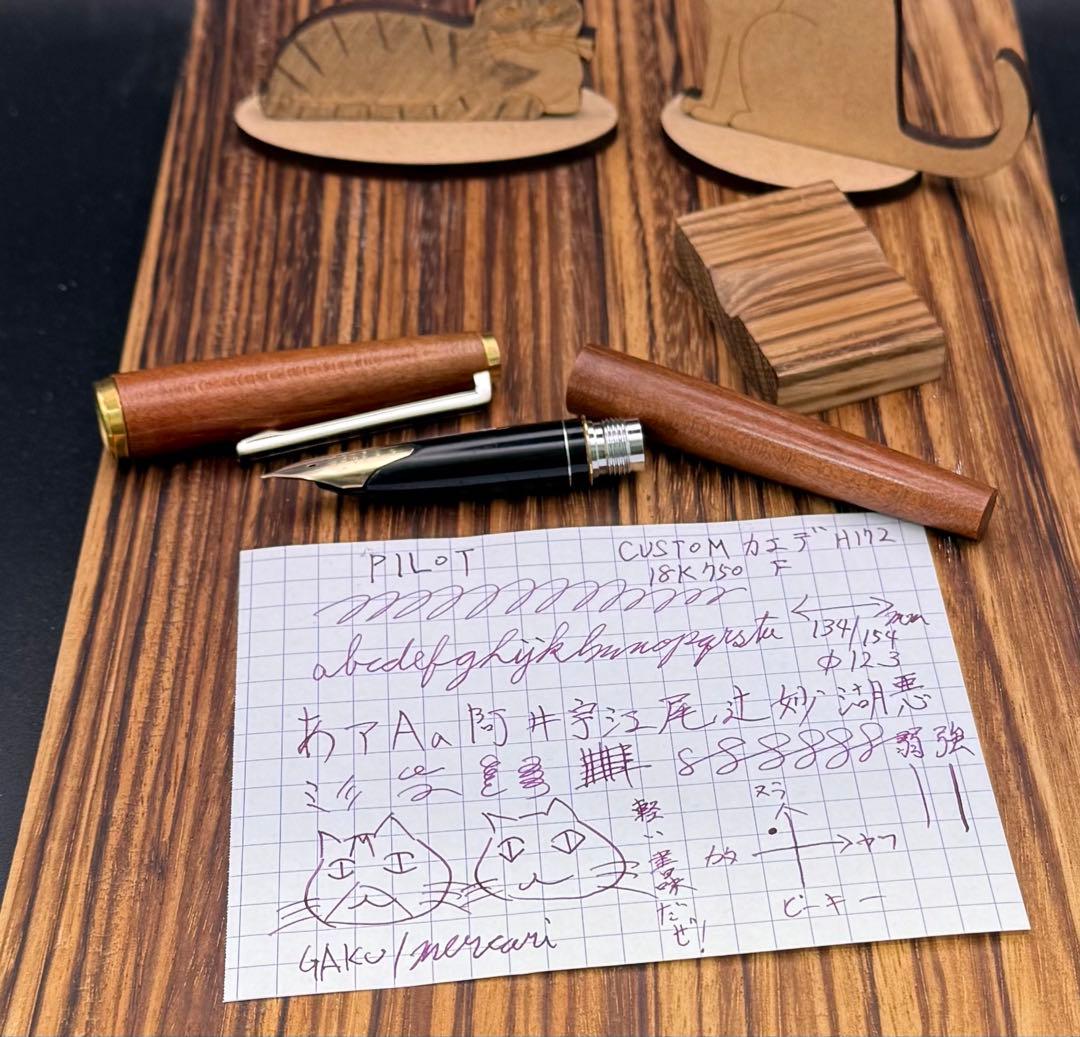 PILOT
CUSTOM カエデ H172
18K750 F
abcdefghijklmnopqrstu
134/154 mm
φ12.3
あアAa阿井宇江尾辻妙湖悪
弱 強
スラ
軽い書味だぜ!
カタ
ヤワ
ビーキー
GAKU/mercari